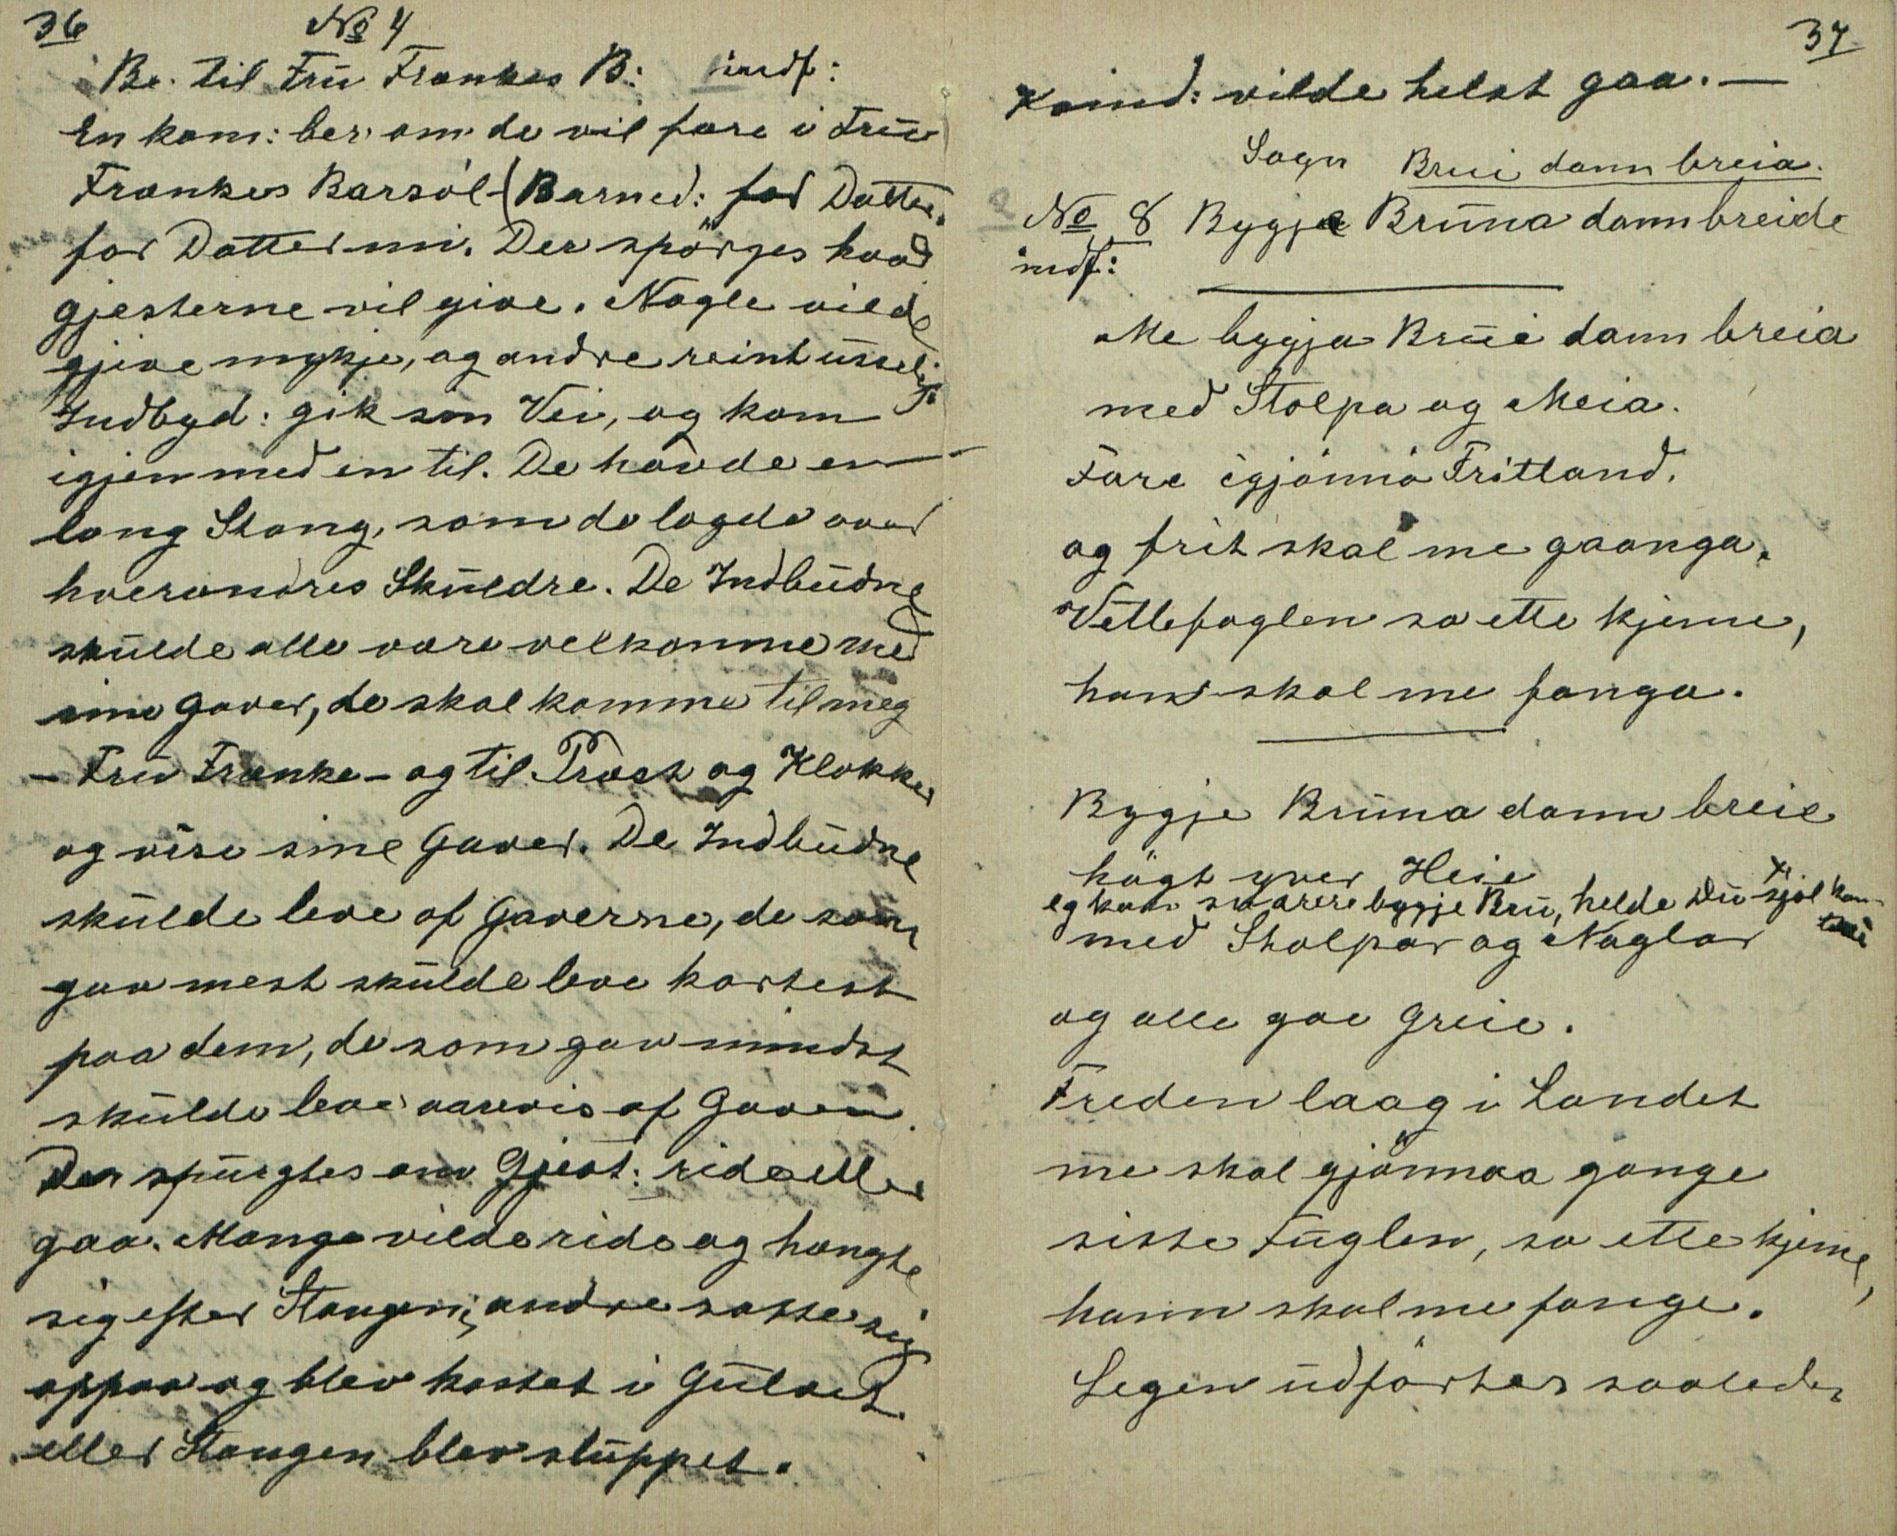 36
№ 4
Be. til Fru Frankes B: indf:
En kom: ber om de vil fare i Fru
Frankes Barsöl - (Barned: for Datter.
for Datter mi. Der spörges hvad
gjesterne vil give. Nogle vilde
gjive mykje, og andre reint usselt
Indbyd: gik sin Vei, og kom
igjen med en til. De havde en
lang Stang, som de lagde over
hverandres Skuldre. De Indbudne
skulde alle være velkomme med
sine Gaver, de skal komme til meg
- Fru Franke - og til Præst og Klokker
og vise sine Gaver. De Indbudne
skulde leve af Gaverne, de som
gav mest skulde leve kortest
paa dem, de som gav mindst
skulde leve aarevis af Gaven.
Der spurgtes om Gjest: ride eller
gaa. Mange vilde ride og hængte
sig efter Stangen, andre satte sig
oppaa og blev kastet i Gulvet
eller Stangen blev sluppet.
37
Kvind: vilde helst gaa. —
Sogn Brui dann breia.
№ 8 Bygje Bruna dann breide
indf:
Me bygja Brui dann breia
med Stolpa og Meia.
Fare igjönnö Fritland.
og frit skal me gaanga.
Vetlefoglen so ette kjeme,
hann skal me fanga.
Bygje Bruna dann breie
högt yver Heie
eg kan snarere bygje Bru, helde Du sjöl kan
med Stolpar og Naglar
og alle gae Greie.
Freden laag i Landet
me skal gjönnaa gange
siste Fuglen, so ette kjeme,
hann skal me fange.
Legen udförtes saaledes